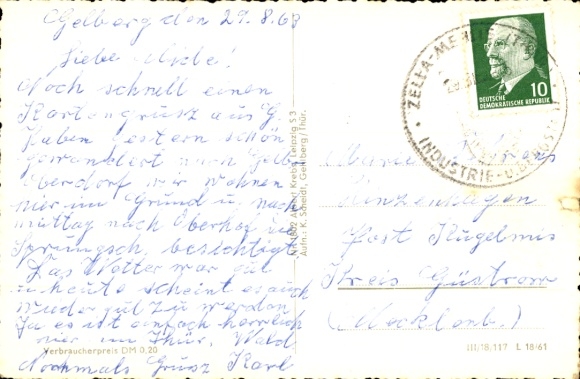 Gelberg den 29.8.63
Liebe
Noch schnell einen
Kartengrusz aus G.
Haben gestern schön
gewandert nach Gelb
Oberdorf wir wohnen
hier im Grund u. nach
mittag nach Oberhof u.
Sprungsch. besichtigt
Das Wetter war gut
u. heute scheint es auch
wieder gut zu werden
Ja es ist einfach herrlich
hier im Thür. Wald
Nochmals Grusz Karl
Verbraucherpreis DM 0,20
Krebs, Leipzig S 3
Aufn.: K. Scheidt, Gehlberg/Thür.
ZELLA-MEHLIS
INDUSTRIE-U.
DEUTSCHE
DEMOKRATISCHE REPUBLIK
10
Post Kugelmis
Kreis Güstrow
(Mecklenb.)
III/18/117 L 18/61